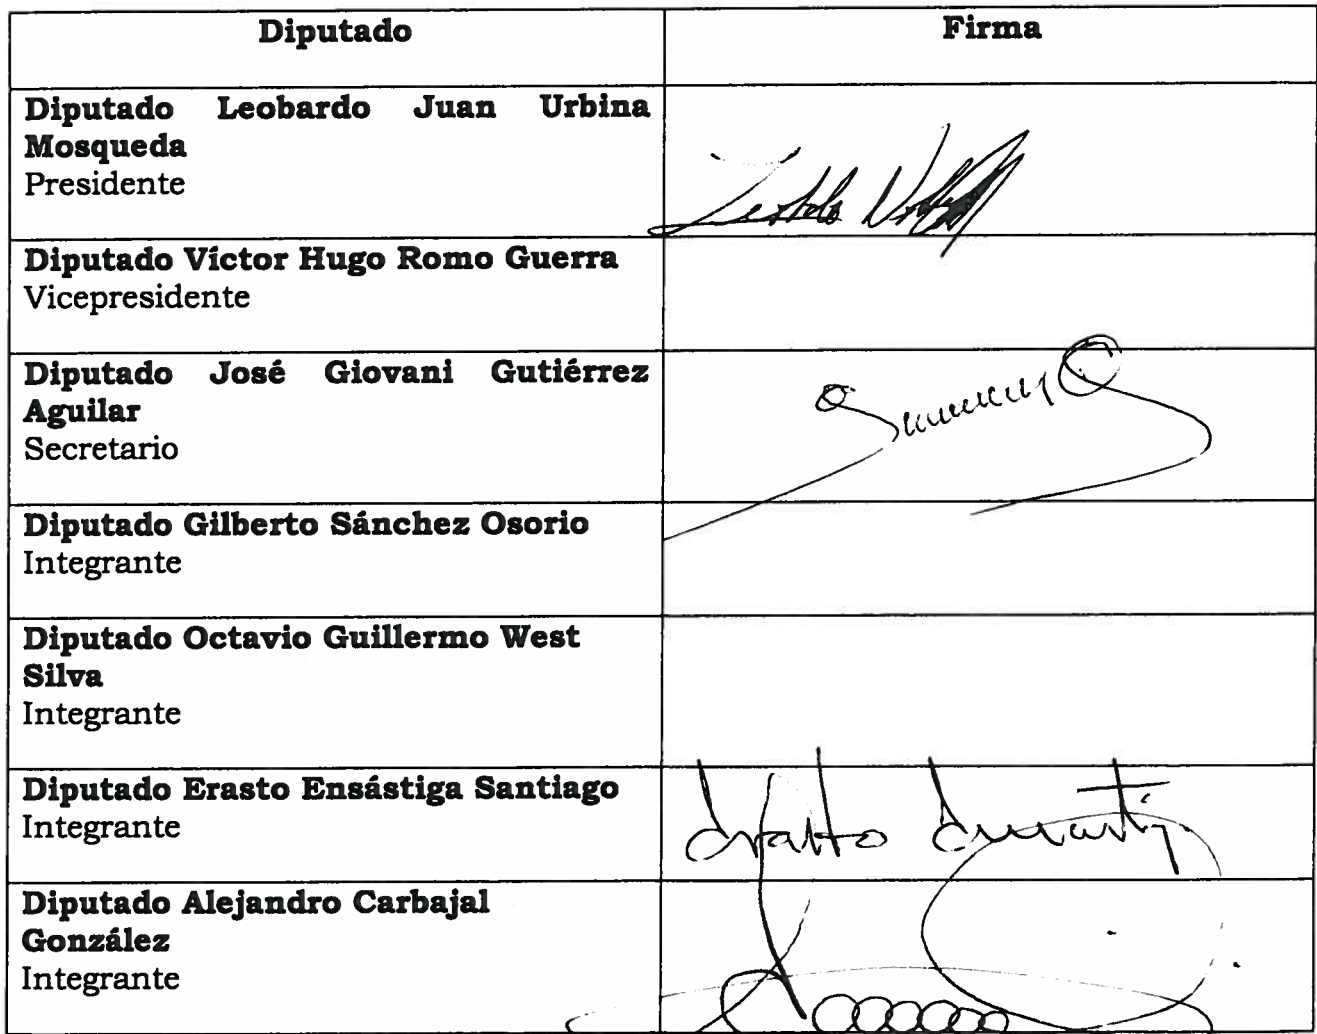 Diputado Firma
Diputado Leobardo Juan Urbina
Mosqueda
Presidente
Diputado Víctor Hugo Romo Guerra
Vicepresidente
Diputado José Giovani Gutiérrez
Aguilar
Secretario
Diputado Gilberto Sánchez Osorio
Integrante
Diputado Octavio Guillermo West
Silva
Integrante
Diputado Erasto Ensástiga Santiago
Integrante
Diputado Alejandro Carbajal
González
Integrante